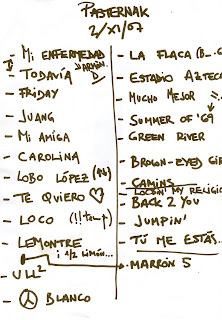 PASTERNAK
2/XI/07
- MI ENFERMEDAD
- TODAVÍA
- FRIDAY
- JUANG
- MI AMIGA
- CAROLINA
- LOBO LÓPEZ
- TE QUIERO ♡
- LOCO
- LEMONTRE
¡ 1/2 LIMÓN...
- ULL²
- BLANCO
- LA FLACA
- ESTADIO AZTEC
- MUCHO MEJOR
- SUMMER OF '69
- GREEN RIVER
- BROWN-EYED GI
- CAMINS
LOSIN' MY RELIGIO
- BACK 2 YOU
- JUMPIN'
- TÚ ME ESTÁS..
MARRÓN 5